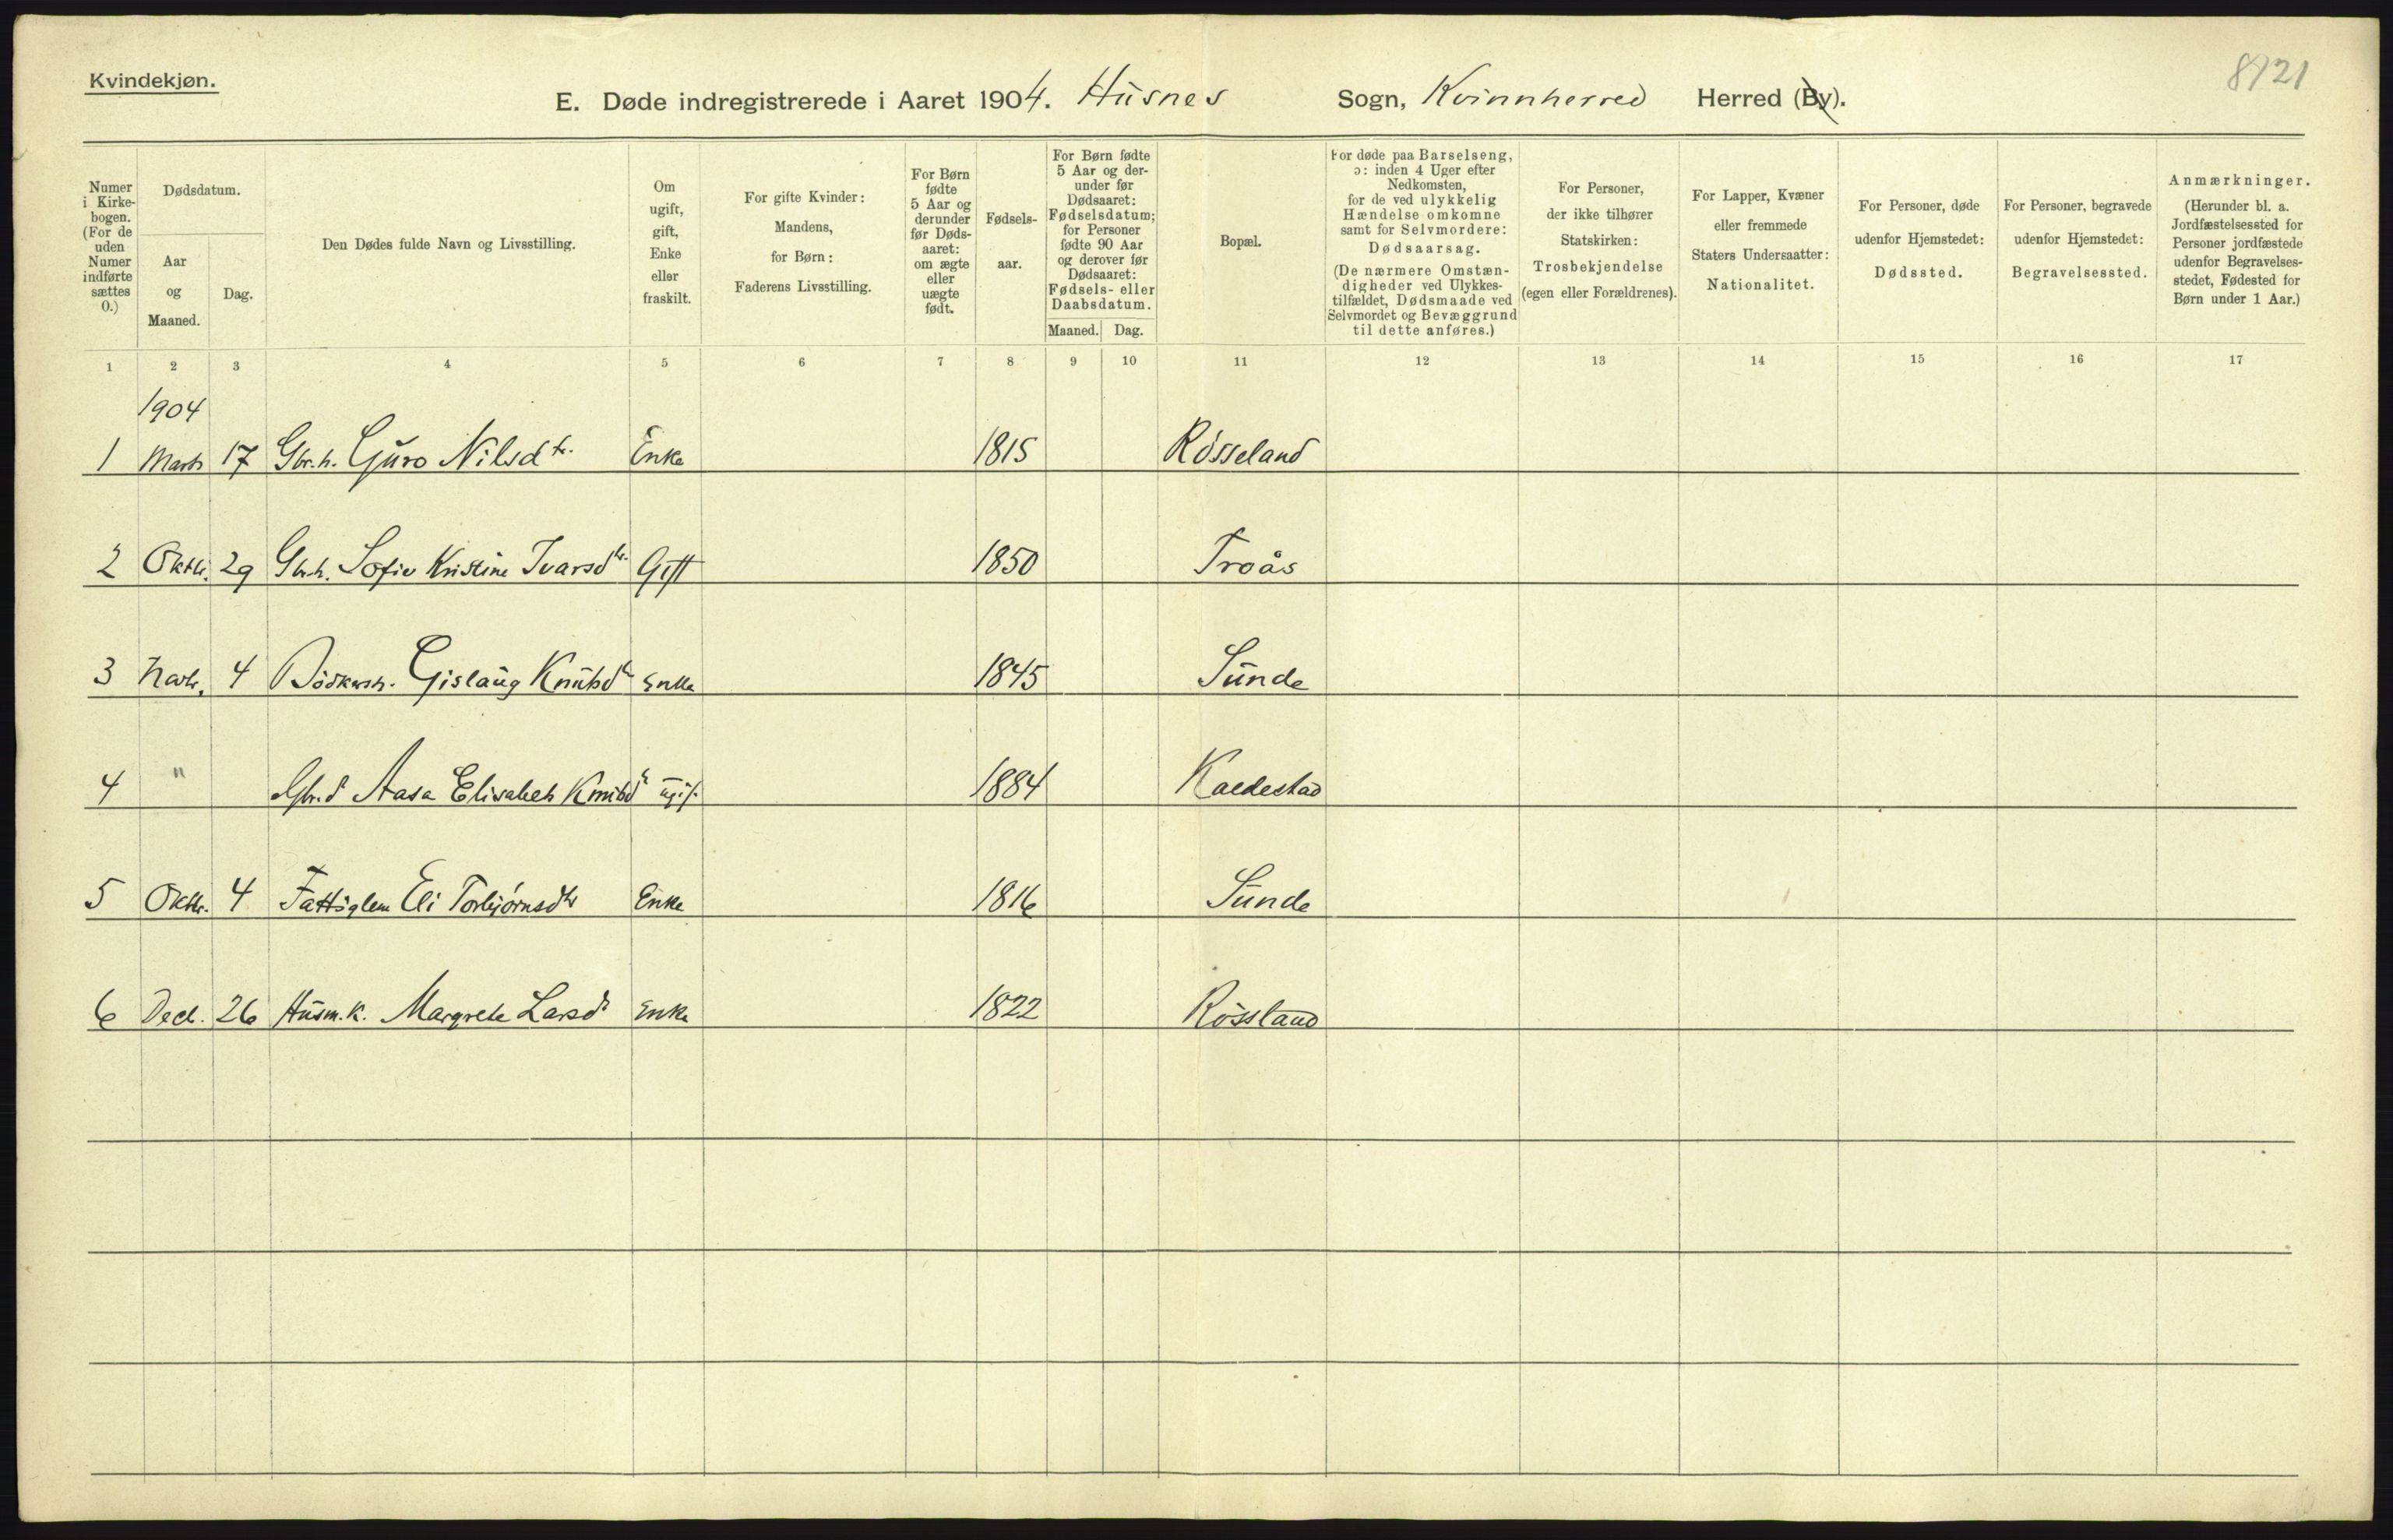 Kvindekjøn.
8921
E. Døde indregistrerede i Aaret 1904. Husnes Sogn, Kvinnherred Herred (By).
Numer i Kirke-bogen. (For de uden Numer indførte sættes 0.)
Dødsdatum.
Aar og Maaned.
Dag.
Den Dødes fulde Navn og Livsstilling.
Om ugift, gift, Enke eller fraskilt.
For gifte Kvinder: Mandens, for Børn: Faderens Livsstilling.
For Børn fødte 5 Aar og derunder før Døds-aaret: om ægte eller uægte født.
Fødsels-aar.
For Børn fødte 5 Aar og der-under før Dødsaaret: Fødselsdatum; for Personer fødte 90 Aar og derover før Dødsaaret: Fødsels- eller Daabsdatum.
Maaned. Dag.
Bopæl.
For døde paa Barselseng, ɔ: inden 4 Uger efter Nedkomsten, for de ved ulykkelig Hændelse omkomne samt for Selvmordere: Dødsaarsag. (De nærmere Omstæn-digheder ved Ulykkes-tilfældet, Dødsmaade ved Selvmordet og Bevæggrund til dette anføres.)
For Personer, der ikke tilhører Statskirken: Trosbekjendelse (egen eller Forældrenes).
For Lapper, Kvæner eller fremmede Staters Undersaatter: Nationalitet.
For Personer, døde udenfor Hjemstedet: Dødssted.
For Personer, begravede udenfor Hjemstedet: Begravelsessted.
Anmærkninger. (Herunder bl. a. Jordfæstelsessted for Personer jordfæstede udenfor Begravelses-stedet, Fødested for Børn under 1 Aar.)
1 2 3 4 5 6 7 8 9 10 11 12 13 14 15 16 17
1904
1 Marts 17 Gbr.h. Guro Nilsdtr. Enke 1815 Røsseland
2 Oktbr. 29 Gbr.h. Sofie Kristine Ivarsdtr. Gift 1850 Troås
3 Novbr. 4 Bødkersh. Gislaug Knutsdtr Enke 1845 Sunde
4 " Gbr.d Aasa Elisabeth Knutsdtr ugif. 1884 Kaldestad
5 Oktbr. 4 Fattiglem Eli Torbjørnsdtr Enke 1816 Sunde
6 Decb. 26 Husm.k. Margrete Larsdtr Enke 1822 Røssland